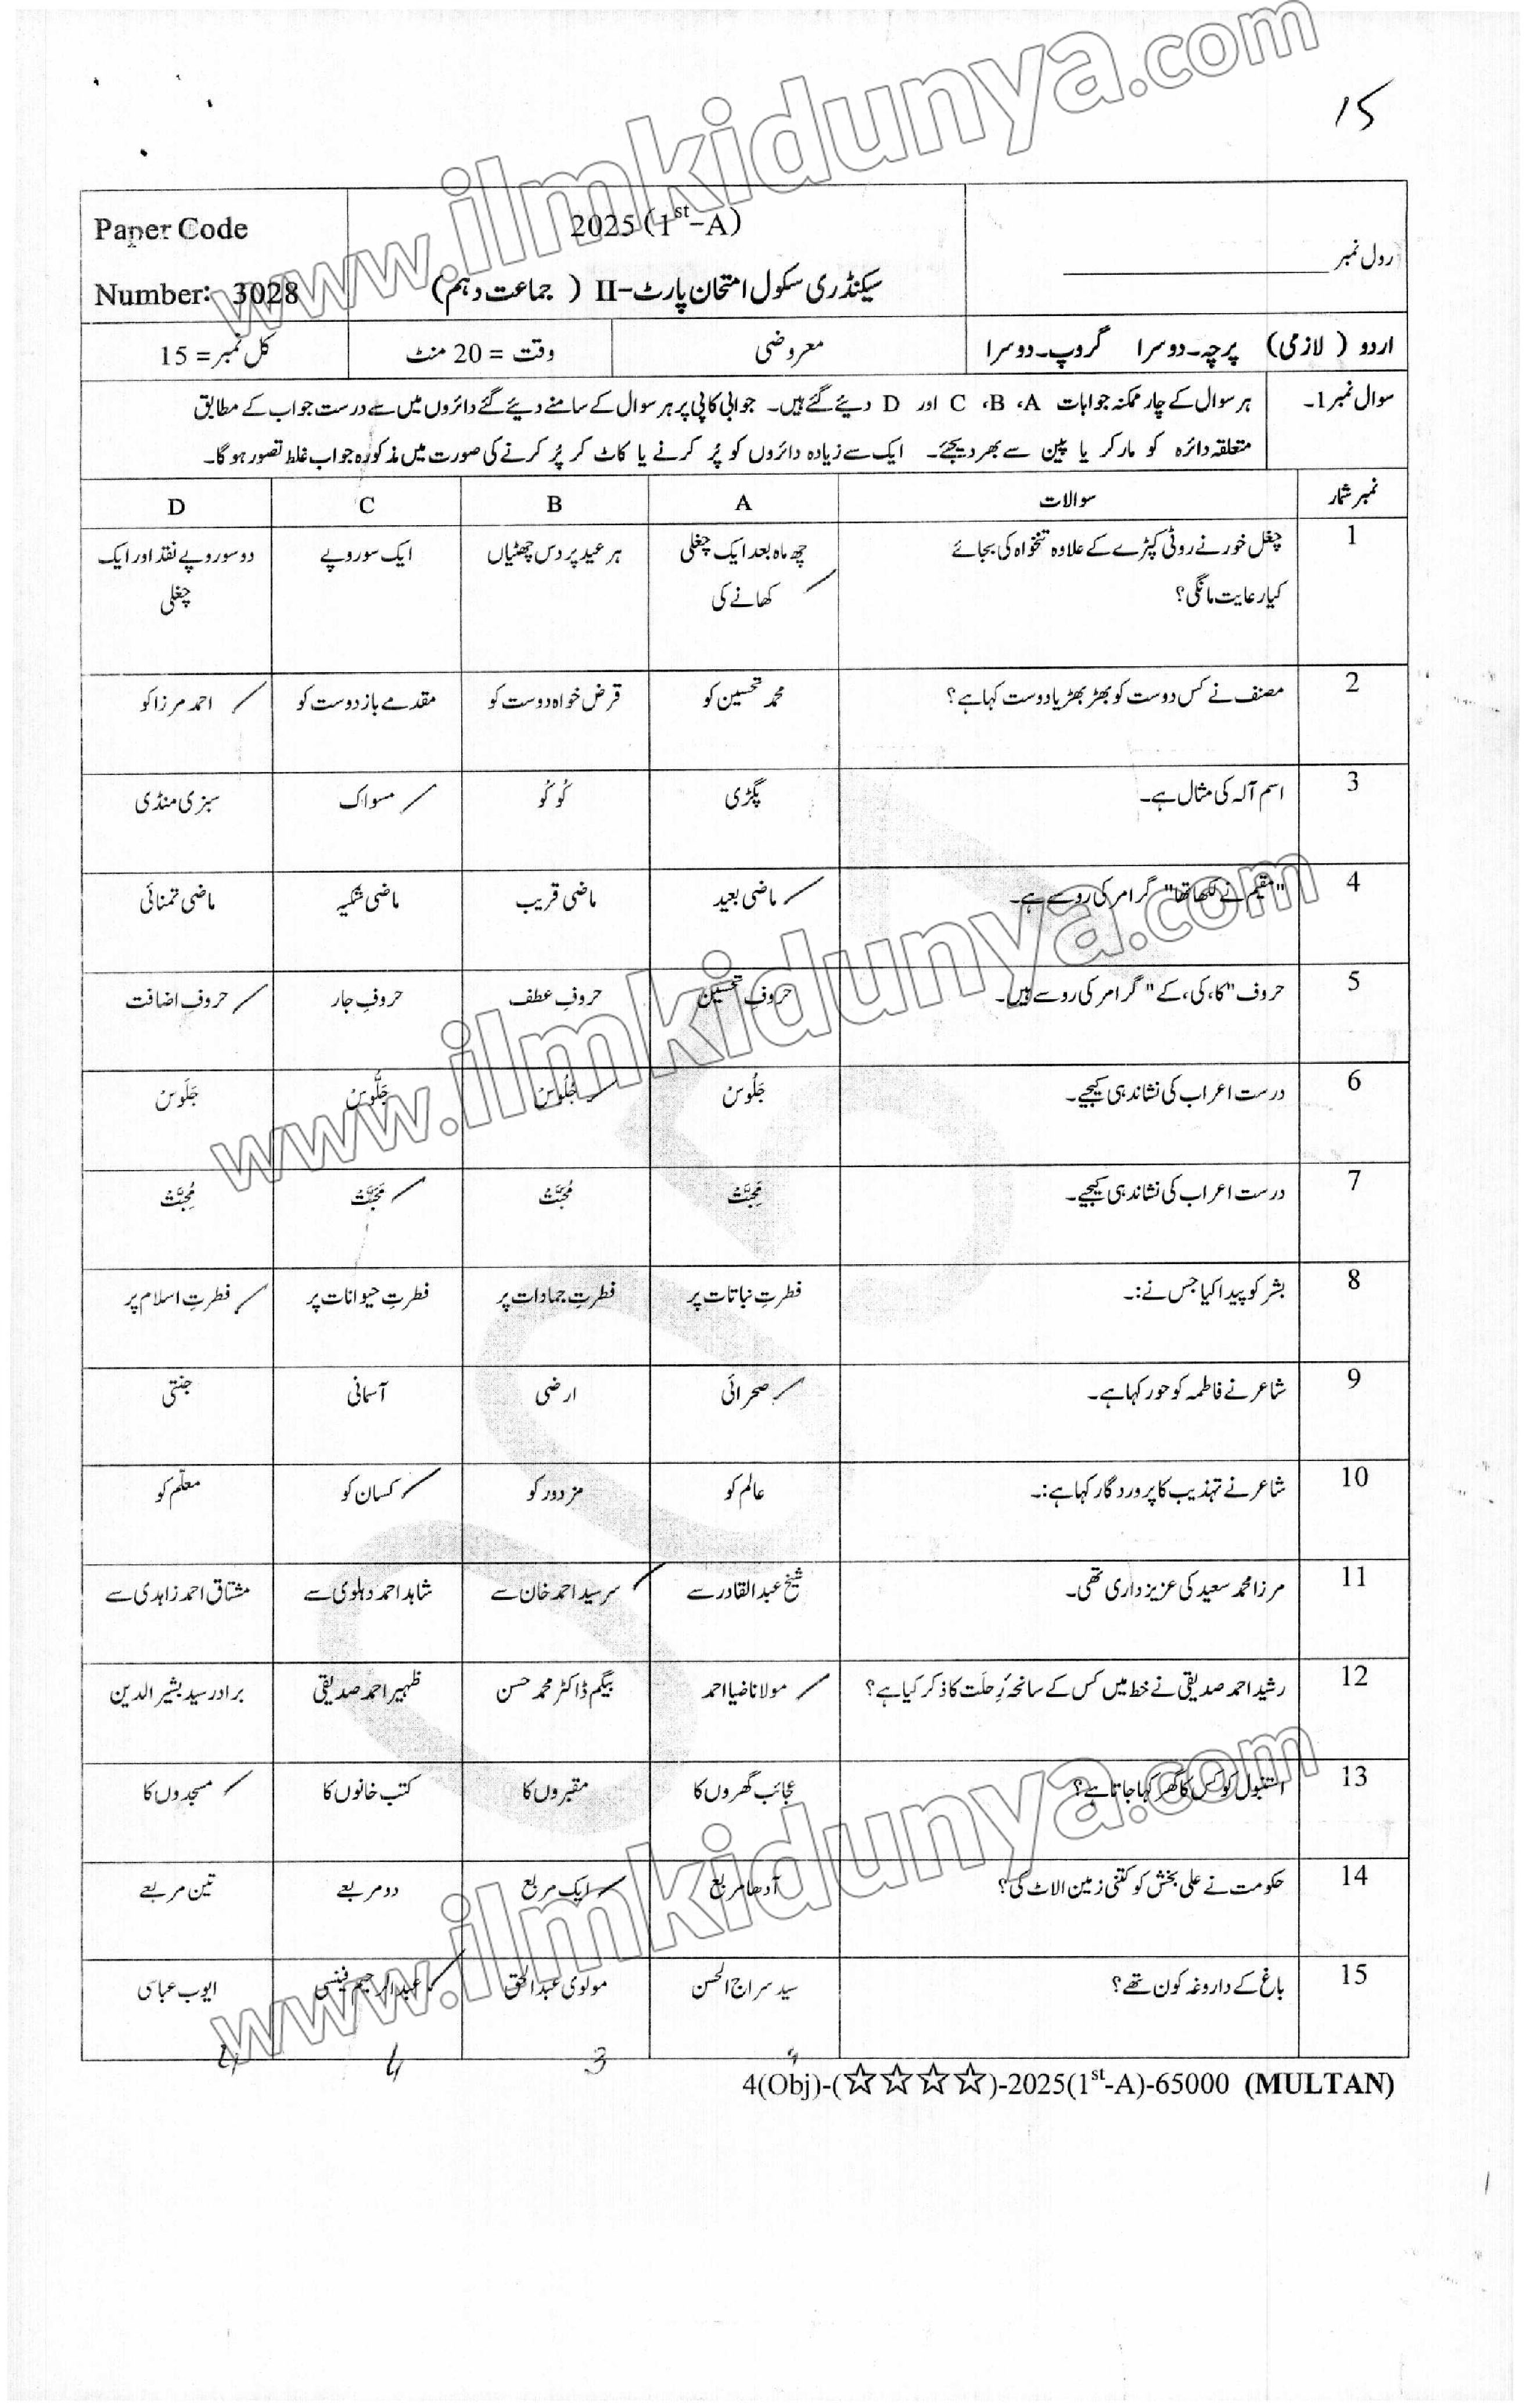 www.ilmkidunya.com
15
Paper Code
Number: 3028
2025 (1st-A)
سیکنڈری سکول امتحان پارٹ-II ( جماعت دہم)
رول نمبر
اردو ( لازمی) پرچہ۔دوسرا گروپ۔دوسرا
معروضی
وقت = 20 منٹ
کل نمبر = 15
سوال نمبر1۔ ہر سوال کے چار ممکنہ جوابات A، B، C اور D دیئے گئے ہیں۔ جوابی کاپی پر ہر سوال کے سامنے دیئے گئے دائروں میں سے درست جواب کے مطابق
متعلقہ دائرہ کو مارکر یا پین سے بھر دیجئے۔ ایک سے زیادہ دائروں کو پُر کرنے یا کاٹ کر پُر کرنے کی صورت میں مذکورہ جواب غلط تصور ہو گا۔
نمبر شمار سوالات A B C D
1 چغل خور نے روٹی کپڑے کے علاوہ تنخواہ کی بجائے چھ ماہ بعد ایک چغلی ہر عید پر دس چھٹیاں ایک سو روپے دو سو روپے نقد اور ایک
کیا رعایت مانگی؟ کھانے کی چغلی
2 مصنف نے کس دوست کو بھڑ بھڑیا دوست کہا ہے؟ محمد تحسین کو قرض خواہ دوست کو مقدمے باز دوست کو احمد مرزا کو
3 اسم آلہ کی مثال ہے۔ پگڑی کُو کُو مسواک سبزی منڈی
4 "مقیم نے لکھا تھا" گرامر کی رو سے ہے۔ ماضی بعید ماضی قریب ماضی شکیہ ماضی تمنائی
5 حروف "کا، کی، کے" گرامر کی رو سے ہیں۔ حروفِ تحسین حروفِ عطف حروفِ جار حروفِ اضافت
6 درست اعراب کی نشاندہی کیجیے۔ جَلُوسْ جُلُوسْ جَلُّوسْ جَلَوسْ
7 درست اعراب کی نشاندہی کیجیے۔ مَحِبَّتْ مُحَبَّتْ مَحَبَّتْ مُحِبَّتْ
8 بشر کو پیدا کیا جس نے:۔ فطرتِ نباتات پر فطرتِ جمادات پر فطرتِ حیوانات پر فطرتِ اسلام پر
9 شاعر نے فاطمہ کو حور کہا ہے۔ صحرائی ارضی آسمانی جنتی
10 شاعر نے تہذیب کا پروردگار کہا ہے:۔ عالم کو مزدور کو کسان کو معلّم کو
11 مرزا محمد سعید کی عزیز داری تھی۔ شیخ عبدالقادر سے سر سید احمد خان سے شاہد احمد دہلوی سے مشتاق احمد زاہدی سے
12 رشید احمد صدیقی نے خط میں کس کے سانحۂ رِحلَت کا ذکر کیا ہے؟ مولانا ضیا احمد بیگم ڈاکٹر محمد حسن ظہیر احمد صدیقی برادر سید بشیر الدین
13 استنبول کو کس کا گھر کہا جاتا ہے؟ عجائب گھروں کا مقبروں کا کتب خانوں کا مسجدوں کا
14 حکومت نے علی بخش کو کتنی زمین الاٹ کی؟ آدھا مربع ایک مربع دو مربعے تین مربعے
15 باغ کے داروغہ کون تھے؟ سید سراج الحسن مولوی عبدالحق عبدالرحیم فینسی ایوب عباسی
4 3 4 4
4(Obj)-(☆☆☆☆)-2025(1st-A)-65000 (MULTAN)
www.ilmkidunya.com
www.ilmkidunya.com